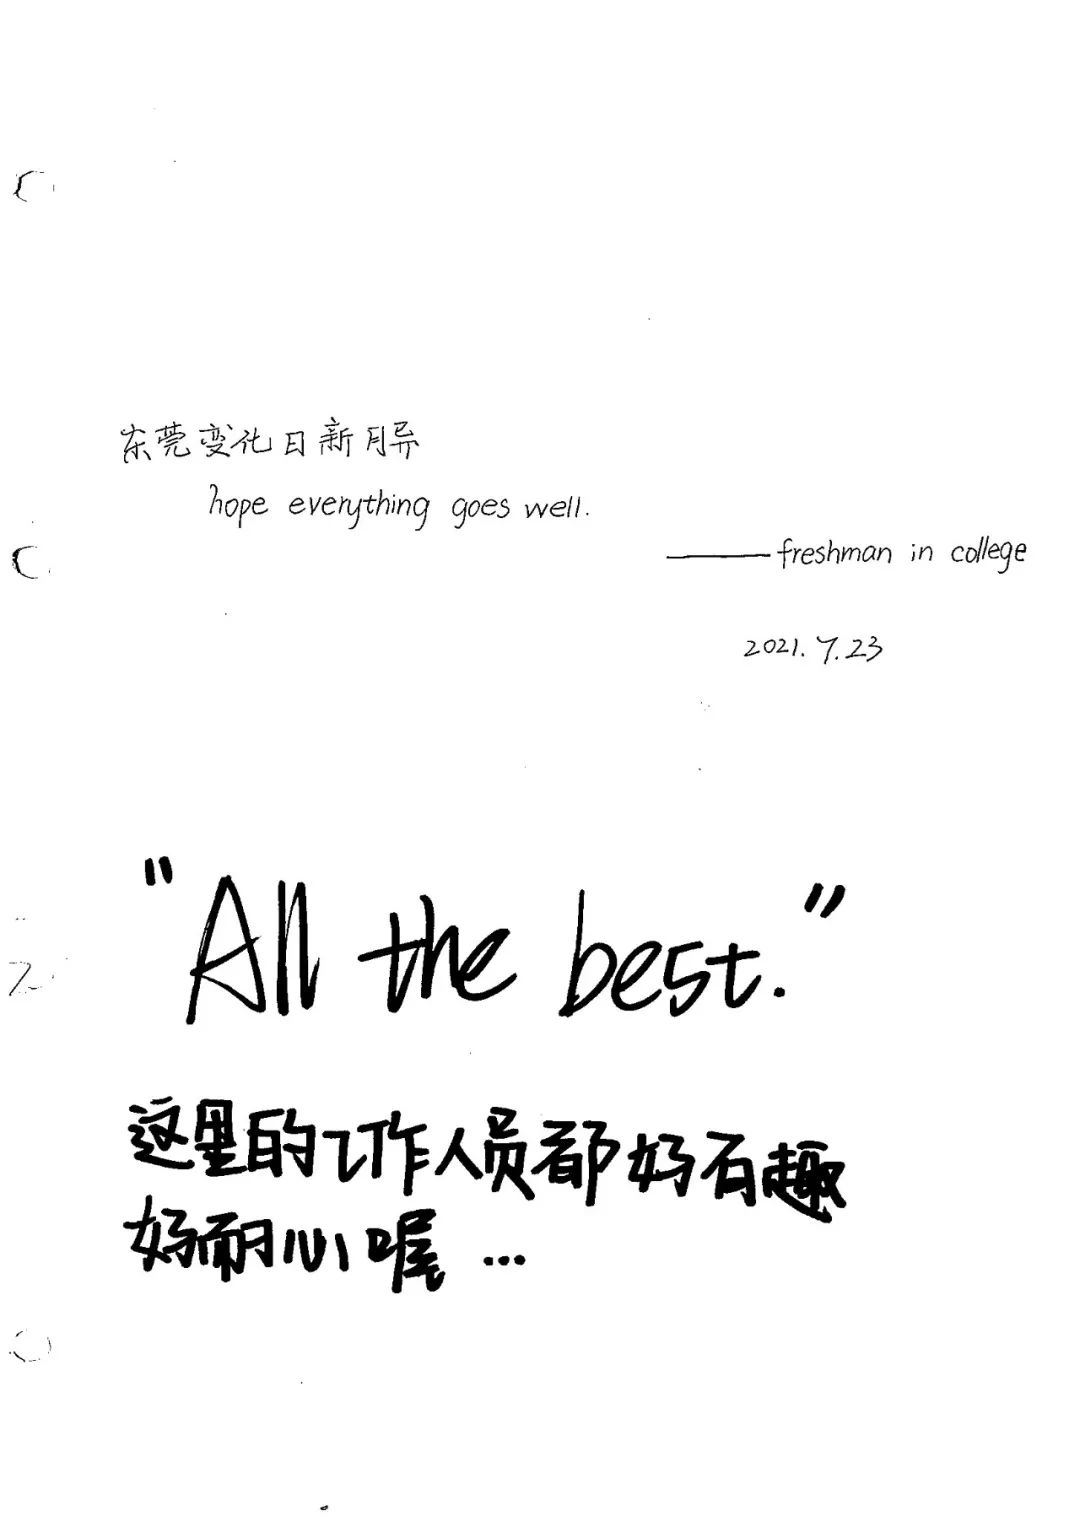 东莞变化日新月异
hope everything goes well.
——freshman in college
2021.7.23
"All the best."
这里的工作人员都好有趣
好耐心喔 ...